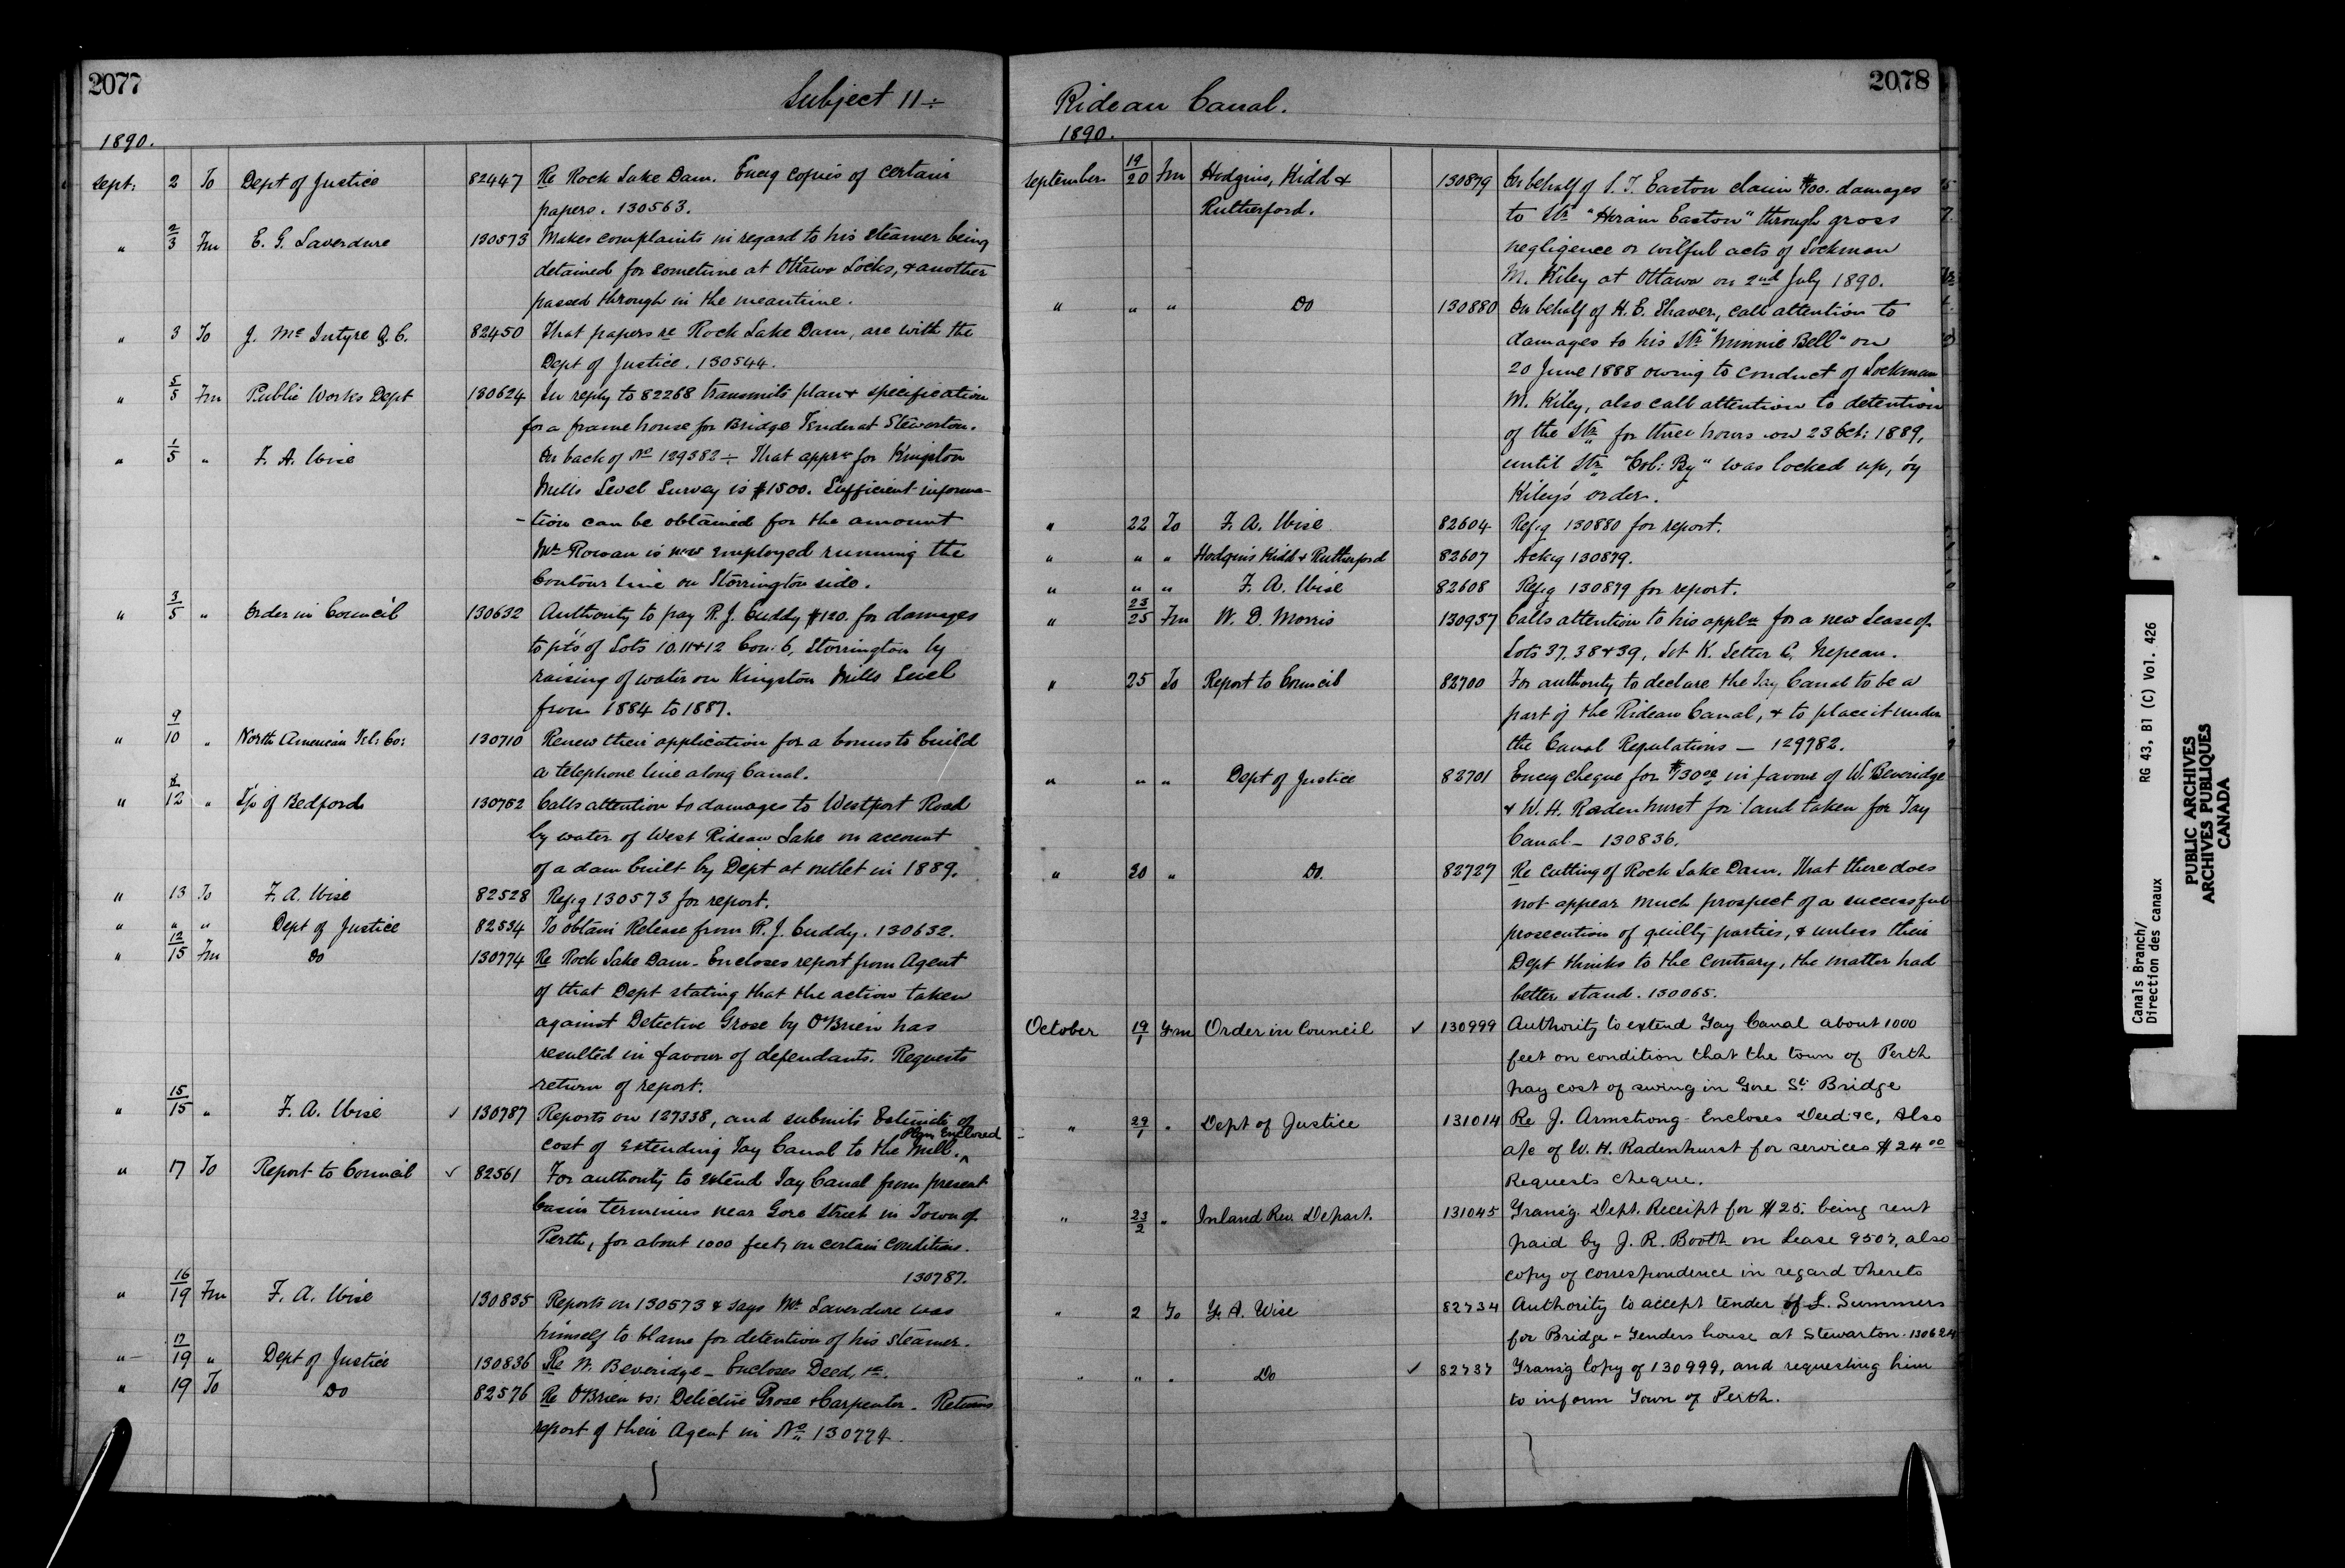 2077
Subject 11 ÷
1890.
Sept: 2 To Dept of Justice 82447 Re Rock Lake Dam. Encg copies of certain
papers. 130563.
" 2/3 Fm E. G. Laverdure 130573 Makes complaints in regard to his steamer being
detained for sometime at Ottawa Locks, & another
passed through in the meantime.
" 3 To J. McIntyre Q.C. 82450 That papers re Rock Lake Dam, are with the
Dept of Justice. 130544.
" 5/5 Fm Public Works Dept 130624 In reply to 82268 transmits plan & specification
for a frame house for Bridge Tender at Stewarton.
" 1/5 " F. A. Wise On back of No 129382 ÷ That apprn for Kingston
Mills Level Survey is $1500. Sufficient informa-
-tion can be obtained for the amount
Mr Rowan is now employed running the
Contour line on Storrington side.
" 3/5 " Order in Council 130632 Authority to pay R. J. Cuddy $120. for damages
to pts of Lots 10.11 & 12 Con: 6, Storrington by
raising of water on Kingston Mills Level
from 1884 to 1887.
" 9/10 " North American Tel: Co: 130710 Renew their application for a bonus to build
a telephone line along Canal.
" 12 " T/p of Bedford 130752 Calls attention to damages to Westport Road
by water of West Rideau Lake on account
of a dam built by Dept at outlet in 1889.
" 13 To F. A. Wise 82528 Refg 130573 for report.
" " " Dept of Justice 82534 To obtain Release from R. J. Cuddy. 130632.
" 12/15 Fm Do 130774 Re Rock Lake Dam - Encloses report from Agent
of that Dept stating that the action taken
against Detective Grose by O'Brien has
resulted in favour of defendants. Requests
return of report.
" 15/15 " F. A. Wise ✓ 130787 Reports on 127338, and submits Estimate of
cost of extending Tay Canal to the Mill. Plan Enclosed
" 17 To Report to Council ✓ 82561 For authority to extend Tay Canal from present
basin terminus near Gore Street in Town of
Perth, for about 1000 feet, on certain conditions.
130787.
" 16/19 Fm F. A. Wise 130835 Reports on 130573 & says Mr Laverdure was
himself to blame for detention of his steamer.
" 17/19 " Dept of Justice 130836 Re W. Beveridge - Encloses Deed, &c.
" 19 To Do 82576 Re O'Brien vs: Detective Grose & Carpenter - Returns
report of their Agent in No 130774.
2078
Rideau Canal.
1890.
September 19/20 Fm Hodgins, Kidd & 130879 On behalf of Easton claim damages
Rutherford. to Str "Hiram Easton" through gross
negligence or wilful acts of Lockman
M. Kiley at Ottawa on 2nd July 1890.
" " " Do 130880 On behalf of H. E. Shaver, call attention to
damages to his Str "Minnie Bell" on
20 June 1888 owing to conduct of Lockman
M. Kiley, also call attention to detention
of the Str for three hours on 23 Oct: 1889,
until Str "Col: By" was locked up, by
Kiley's order.
" 22 To F. A. Wise 82604 Refg 130880 for report.
" " " Hodgins Kidd & Rutherford 82607 Ackg 130879.
" " " F. A. Wise 82608 Refg 130879 for report.
" 23/25 Fm W. D. Morris 130937 Calls attention to his appln for a new Lease of
Lots 37, 38 & 39, Lot K. Letter C. Nepean.
" 25 To Report to Council 82700 For authority to declare the Tay Canal to be a
part of the Rideau Canal, & to place it under
the Canal Regulations — 129782.
" " " Dept of Justice 82701 Encg cheque for $130.00 in favour of W. Beveridge
& W. H. Radenhurst for land taken for Tay
Canal - 130836.
" 30 " Do. 82727 Re Cutting of Rock Lake Dam. That there does
not appear much prospect of a successful
prosecution of guilty parties, & unless their
Dept thinks to the contrary, the matter had
better stand. 130065.
October 19/1 Frm Order in Council ✓ 130999 Authority to extend Tay Canal about 1000
feet on condition that the town of Perth
pay cost of swing in Gore St. Bridge
" 29/1 " Dept of Justice 131014 Re J. Armstrong - Encloses Deed &c, Also
a/c of W. H. Radenhurst for services $24.00
Requests cheque.
" 23/2 " Inland Rev. Depart. 131045 Transg. Dept. Receipt for $25. being rent
paid by J. R. Booth on Lease 9507, also
copy of correspondence in regard thereto
" 2 To F. A. Wise 82734 Authority to accept tender of L. Summers
for Bridge - Tenders house at Stewarton. 130624
" " " Do ✓ 82737 Transg Copy of 130999, and requesting him
to inform Town of Perth.
Canals Branch/ RG 43, B1 (C) Vol. 426
Direction des canaux
PUBLIC ARCHIVES
ARCHIVES PUBLIQUES
CANADA